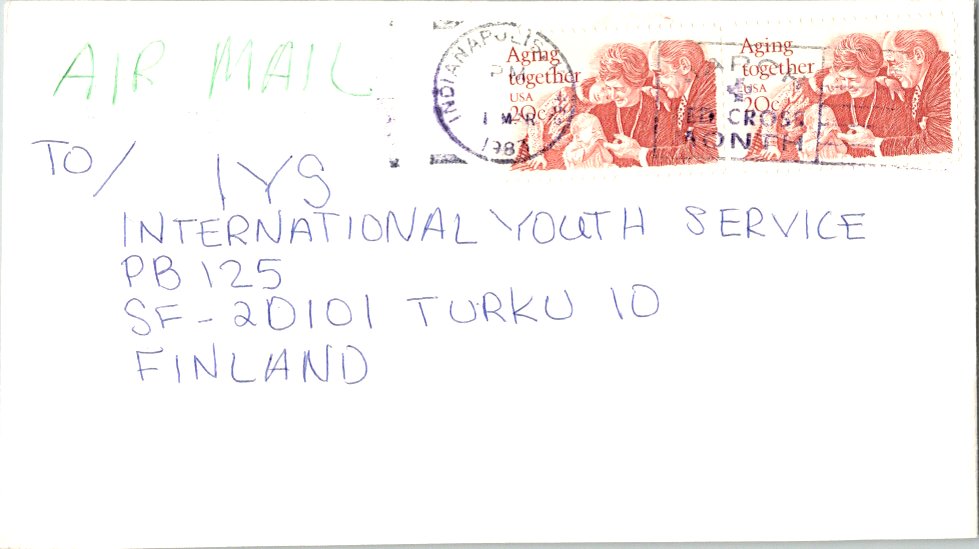 AIR MAIL
INDIANAPOLIS
PM
1 MAR
1983
Aging
together
USA
20c
Aging
together
USA
20c
CROSS
MONTH
TO/ IYS
INTERNATIONAL YOUTH SERVICE
PB 125
SF-20101 TURKU 10
FINLAND